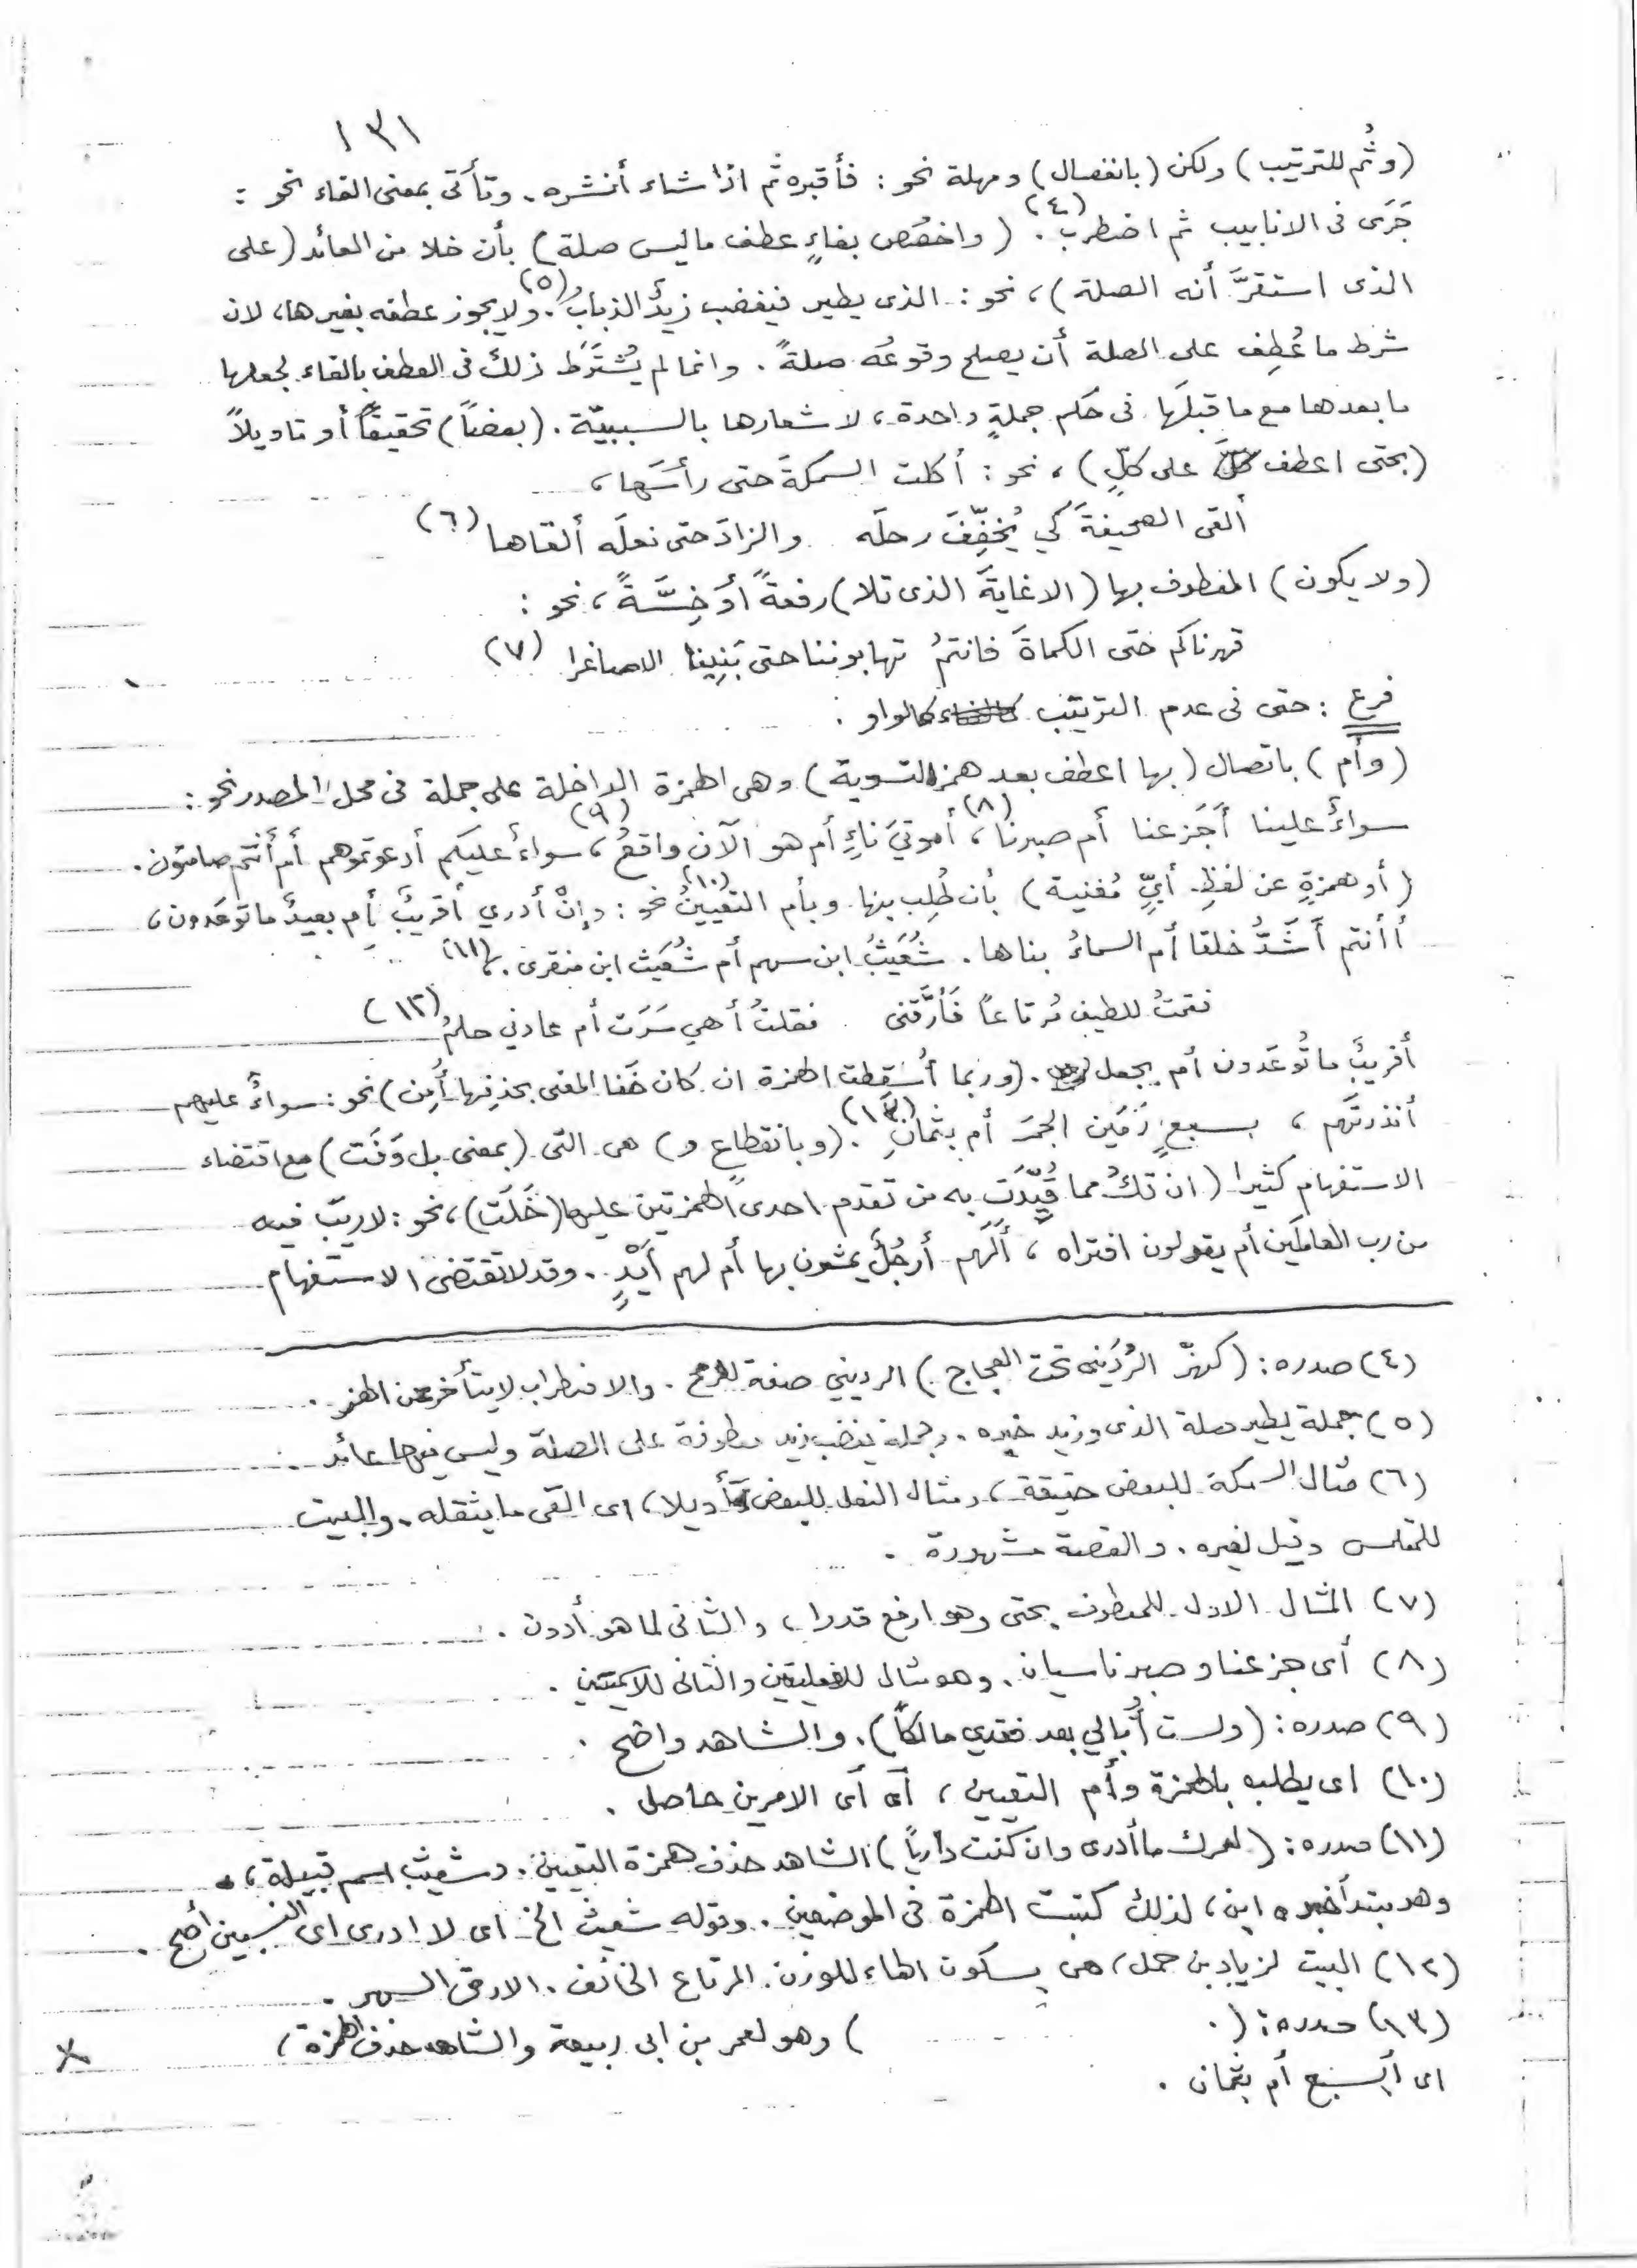 ١٣١
(وثُم للترتيب) ولكن (بانفصال) ومهلة نحو : فأقبره ثم اذا شاء أنشره . وتأتى بمعنى الفاء نحو :
جَرَى فى الانابيب ثم اضطرب (٤) . (واخصُص بفاءٍ عطف ما ليس صلة) بأن خلا من العائد (على
الذى استقرَّ أنه الصلة) ، نحو : الذى يطير فيغضب زيدٌ الذباب (٥) . ولا يجوز عطفه بغيرها ، لان
شرط ما عُطِف على الصلة أن يصلح وقوعُه صلةً . وانما لم يُشتَرَط ذلك فى العطف بالفاء لجعلها
ما بعدها مع ما قبلَها فى حكم جملةٍ واحدة ، لاشعارها بالسببيّة . (بعضاً) تحقيقاً أو تاويلاً
(بحتى اعطف على كلٍّ) ، نحو : أكلت السمكةَ حتى رأسَها ،
ألقى الصحيفةَ كي يُخفِّفَ رحلَه والزادَ حتى نعلَه ألقاها (٦)
(ولا يكون) المعطوف بها (الا غايةَ الذى تلا) رفعةً أو خِسَّةً ، نحو :
قهرناكم حتى الكماةَ فانتمُ تهابوننا حتى بَنِينا الاصاغرا (٧)
فرع : حتى فى عدم الترتيب كالواو .
(وأم) باتصال (بها اعطف بعد همز التسوية) وهى الهمزة الداخلة على جملة فى محل المصدر نحو :
سواءٌ علينا أَجَزعنا أم صبرنا (٨) ، أموتيَ ناءٍ أم هو الآن واقعُ (٩) ، سواءٌ عليكم أدعوتموهم أم أنتم صامتون .
(أو همزةٍ عن لفظِ أيٍّ مُغنية) بأن طُلِب بها وبأم التعيينُ (١٠) نحو : وإنْ أدري أقريبٌ أم بعيدٌ ما توعَدون ،
أأنتم أَشَدُّ خلقا أم السماءُ بناها . شُعَيثُ ابن سهم أم شُعَيث ابن منقرى . (١١)
فقمتُ للطيف مُرتاعاً فَأرَّقَنى فقلتُ أهي سَرَت أم عادني حلمُ (١٢)
أقريبٌ ما تُوعَدون أم يجعل . (وربما أُسقِطت الهمزة ان كان خَفا المعنى بحذفِها أُمِن) نحو : سواءٌ عليهم
أنذرتَهم ، بسبعٍ رَمَين الجمرَ أم بثمانِ (١٣) . (وبانقطاعٍ و) هى التى (بمعنى بل وَفَت) مع اقتضاء
الاستفهام كثيرا (ان تكُ مما قُيِّدَت به من تقدم احدى الهمزتين عليها (خَلَت) ، نحو : لا ريبَ فيه
من رب العالمَين أم يقولون افتراه ، ألَهم أرجُلٌ يمشون بها أم لهم أيْدٍ . وقد لا تقتضى الاستفهام
(٤) صدره : (كهزّ الرُّدَينى تحت العجاج) الرديني صفة للرمح . والاضطراب لا يتأخر عن الهز .
(٥) جملة يطير صلة الذى وزيد خبره . وجملة يغضب زيد معطوفة على الصلة وليس فيها عائد .
(٦) مثال السمكة للبعض حقيقة ، ومثال النعل للبعض تأديلا ، اى القى ما يثقله . والبيت
للمتلمس وقيل لغيره . والقصة مشهورة .
(٧) المثال الاول للمعطوف بحتى وهو ارفع قدرا ، والثانى لما هو أدون .
(٨) أى جزعنا وصبرنا سيان . وهو مثال للفعليتين والثانى للاسميتين .
(٩) صدره : (ولست أُبالي بعد فقدي مالكاً) . والشاهد واضح .
(١٠) اى يطلب بالهمزة وأم التعيين ، أى أى الامرين حاصل .
(١١) صدره : (لعمرك ما أدرى وان كنت دارياً) الشاهد حذف همزة التعيين . وشعيث اسم قبيلة ،
وهو مبتدأ خبره ابن ، لذلك كتبت الهمزة فى الموضعين . وقوله شعيث الخ اى لا ادرى اى النسبين أصح .
(١٢) البيت لزياد بن حمل ، هى بسكون الهاء للوزن . المرتاع الخائف . الارق السهر .
(١٣) صدره : ( ) وهو لعمر بن ابى ربيعة والشاهد حذف الهمزة ،
اى أبسبع أم بثمان .